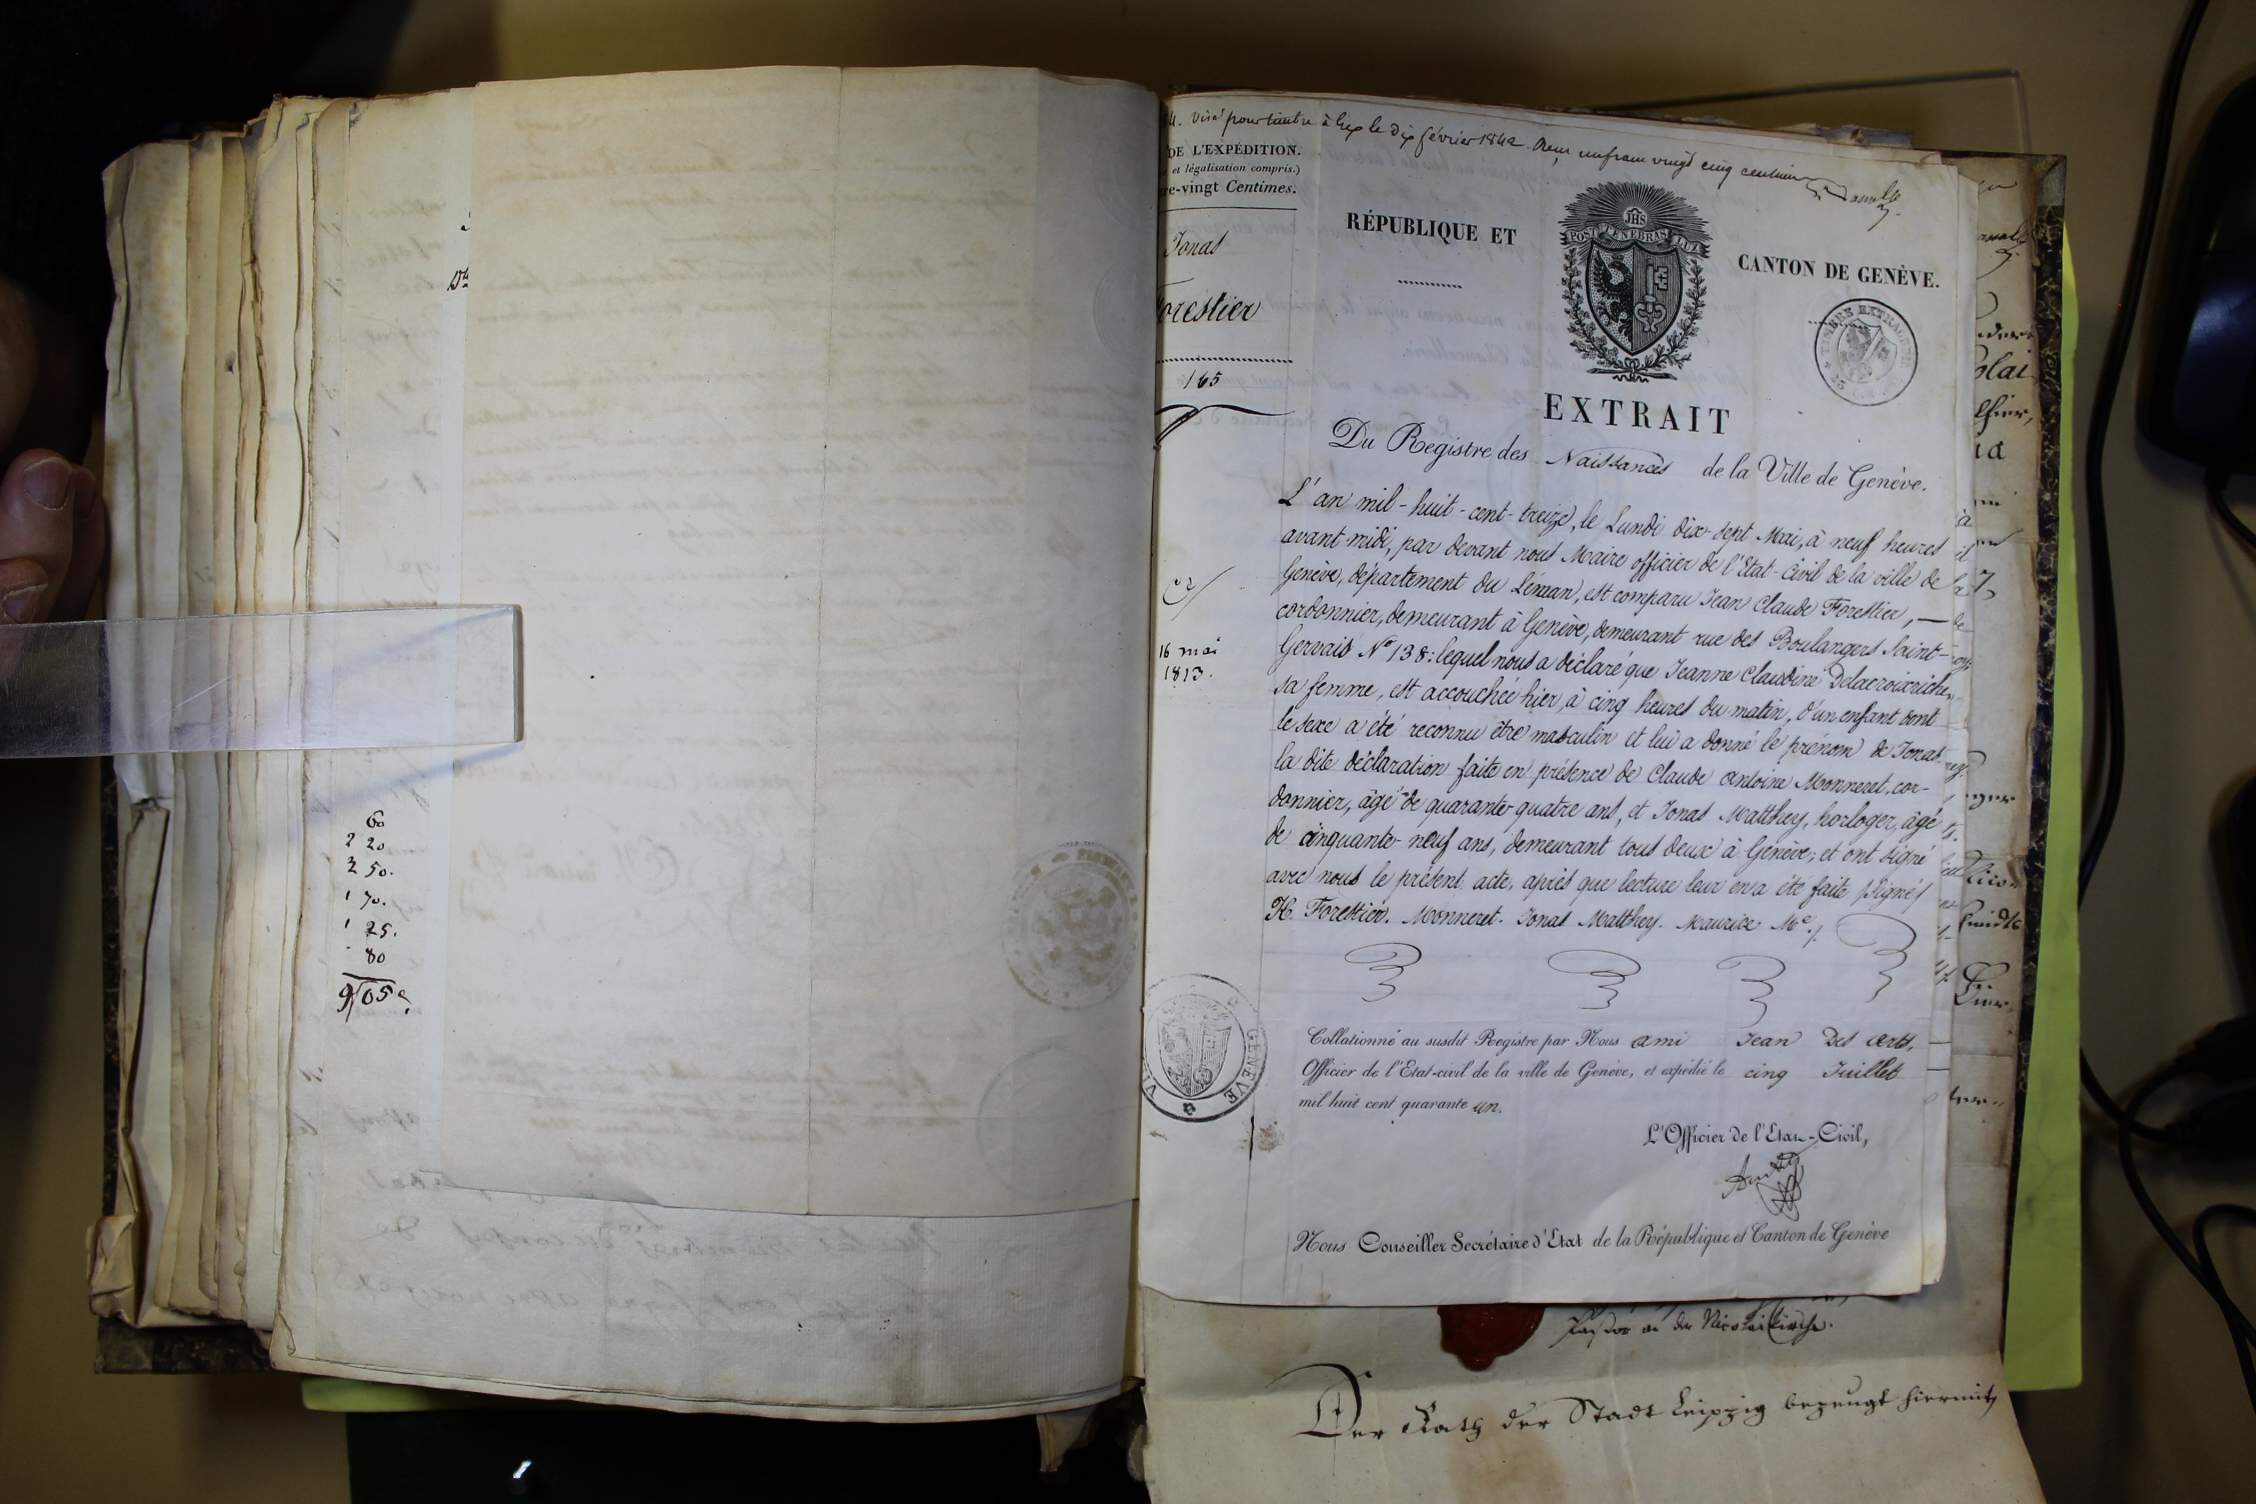 60
2 20
2 50.
1 70.
1 25.
80
9,05c
Visé pour timbre à Gex le dix février 1842. Reçu un franc vingt cinq centimes
DE L'EXPÉDITION.
et légalisation compris.)
re-vingt Centimes.
Jonas
orestier
165
16 mai
1813.
RÉPUBLIQUE ET
JHS
POST TENEBRAS LUX
CANTON DE GENÈVE.
TIMBRE EXTRAORD.
EXTRAIT
Du Registre des Naissances de la Ville de Genève.
L'an mil-huit-cent-treize, le Lundi dix-sept Mai, à neuf heures
avant-midi, par devant nous Maire officier de l'Etat-Civil de la ville de
Genève, département du Léman, est comparu Jean Claude Forestier, —
cordonnier, demeurant à Genève, demeurant rue des Boulangers Saint-
Gervais N° 138: lequel nous a déclaré que Jeanne Claudine Delacroixriche,
sa femme, est accouchée hier, à cinq heures du matin, d'un enfant dont
le sexe a été reconnu être masculin et lui a donné le prénom de Jonas
la dite déclaration faite en présence de Claude Antoine Monneret, cor-
donnier, âgé de quarante-quatre ans, et Jonas Matthey, horloger, âgé
de cinquante-neuf ans, demeurant tous deux à Genève; et ont signé
avec nous le présent acte, après que lecture leur en a été faite (signé)
H. Forestier. Monneret. Jonas Matthey. Maurice Me.
GENÈVE
Collationné au susdit Registre par Nous Ami Jean Des Arts,
Officier de l'Etat-civil de la ville de Genève, et expédié le cinq Juillet
mil huit cent quarante un.
L'Officier de l'Etat-Civil,
Nous Conseiller Secrétaire d'Etat de la République et Canton de Genève
Pastor an der Nicolaikirche.
Der Rath der Stadt Leipzig bezeugt hiermit